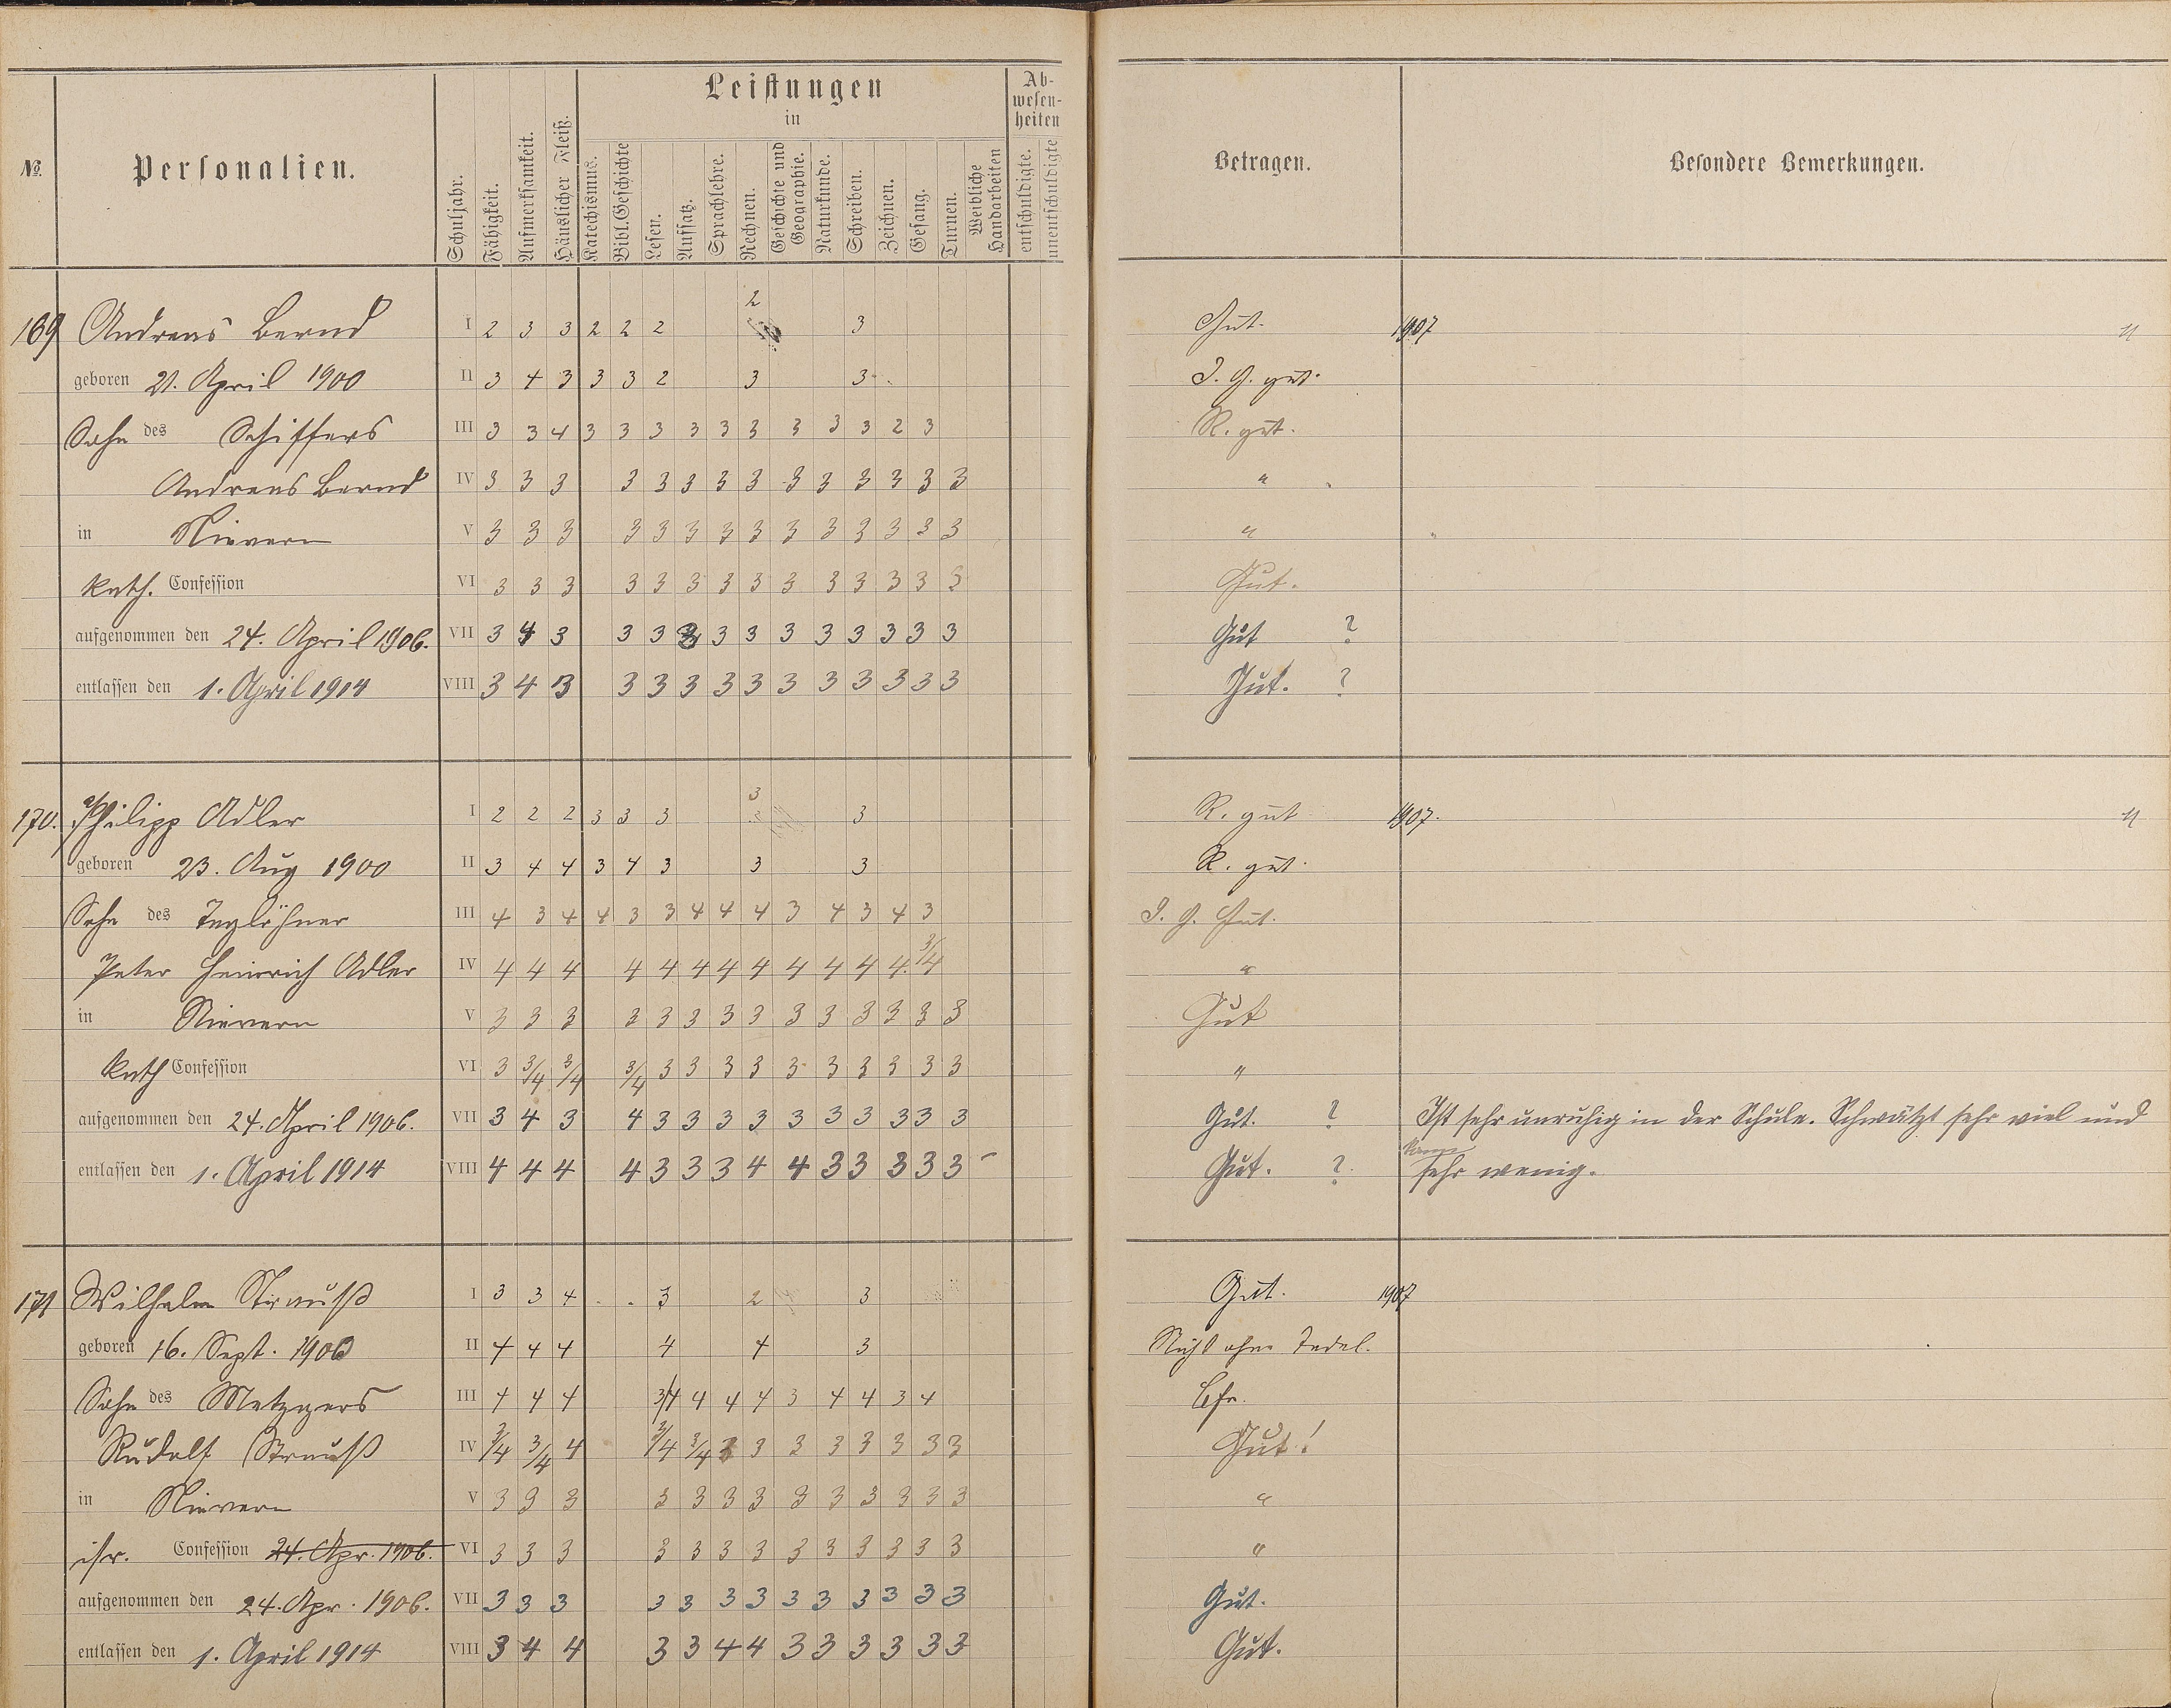 Leistungen
in
Ab-
wesen-
heiten
№
Personalien.
Schuljahr.
Fähigkeit.
Aufmerksamkeit.
Häuslicher Fleiß.
Katechismus.
Bibl. Geschichte
Lesen.
Aufsatz.
Sprachlehre.
Rechnen.
Geschichte und
Geographie.
Naturkunde.
Schreiben.
Zeichnen.
Gesang.
Turnen.
Weibliche
Handarbeiten
entschuldigte.
unentschuldigte
Betragen.
Besondere Bemerkungen.
2
169 Andreas Bernd I 2 3 3 2 2 2 3 Gut. 1907
geboren 21. April 1900 II 3 4 3 3 3 2 3 3 I. G. gut.
Sohn des Schiffers III 3 3 4 3 3 3 3 3 3 3 3 3 2 3 R. gut.
Andreas Bernd IV 3 3 3 3 3 3 3 3 3 3 3 3 3 3 "
in Nievern V 3 3 3 3 3 3 3 3 3 3 3 3 3 3 "
kath. Confession VI 3 3 3 3 3 3 3 3 3 3 3 3 3 3 Gut.
aufgenommen den 24. April 1906. VII 3 4 3 3 3 3 3 3 3 3 3 3 3 3 Gut ?
entlassen den 1. April 1914 VIII 3 4 3 3 3 3 3 3 3 3 3 3 3 3 Gut. ?
3
170. Philipp Adler I 2 2 2 3 3 3 3 R. gut 1907.
geboren 23. Aug 1900 II 3 4 4 3 4 3 3 3 R. gut.
Sohn des Taglöhner III 4 3 4 4 3 3 4 4 4 3 4 3 4 3 I. G. Gut.
Peter Heinrich Adler IV 4 4 4 4 4 4 4 4 4 4 4 4. 3/4 "
in Nievern V 3 3 3 3 3 3 3 3 3 3 3 3 3 3 Gut
kath Confession VI 3 3/4 3/4 3/4 3 3 3 3 3 3 3 3 3 3 "
aufgenommen den 24. April 1906. VII 3 4 3 4 3 3 3 3 3 3 3 3 3 3 Gut. ? Ist sehr unruhig in der Schule. Schwätzt sehr viel und
entlassen den 1. April 1914 VIII 4 4 4 4 3 3 3 4 4 3 3 3 3 3 Gut. ? sehr wenig.
171 Wilhelm Strauß I 3 3 4 3 2 3 Gut. 1907
geboren 16. Sept. 1900 II 4 4 4 4 4 3 Nicht ohne Tadel.
Sohn des Metzgers III 4 4 4 3/4 4 4 4 3 4 4 3 4
Rudolf Strauß IV 3/4 3/4 4 3/4 3/4 3 3 3 3 3 3 3 3 Gut!
in Nievern V 3 3 3 3 3 3 3 3 3 3 3 3 3 "
isr. Confession 24. Apr. 1906. VI 3 3 3 3 3 3 3 3 3 3 3 3 3 "
aufgenommen den 24. Apr. 1906. VII 3 3 3 3 3 3 3 3 3 3 3 3 3 Gut.
entlassen den 1. April 1914 VIII 3 4 4 3 3 4 4 3 3 3 3 3 3 Gut.